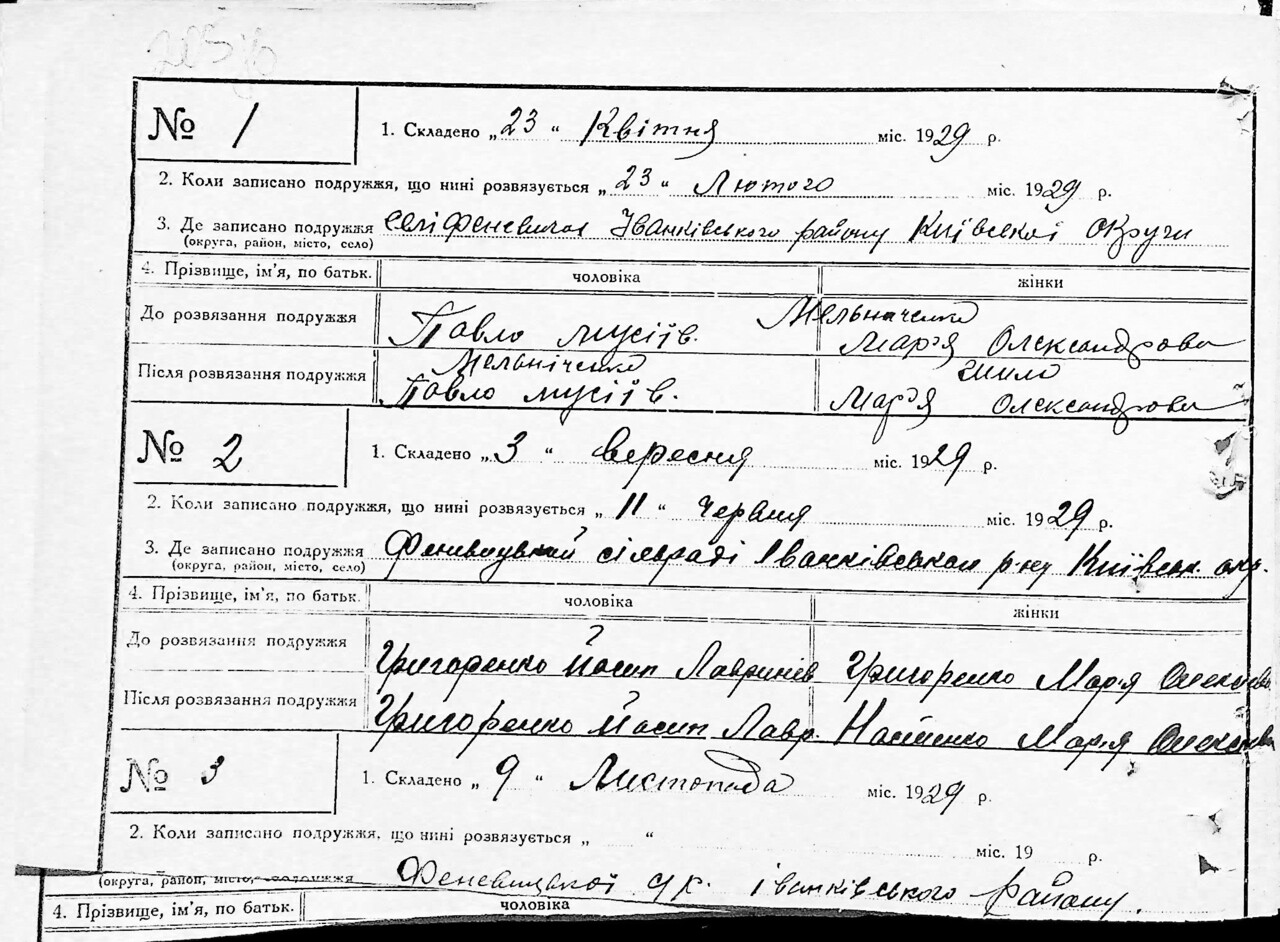 № 1
1. Складено „23“ Квітня міс. 1929 р.
2. Коли записано подружжя, що нині розвязується „23“ Лютого міс. 1929 р.
3. Де записано подружжя Іванківського району Київської Округи
(округа, район, місто, село)
4. Прізвище, ім'я, по батьк. чоловіка жінки
Мельниченко
До розвязання подружжя Павло Мусіїв. Мар'я Олександрова
Мельніченко Шило
Після розвязання подружжя Павло Мусіїв. Мар'я Олександрова
№ 2
1. Складено „3“ вересня міс. 1929 р.
2. Коли записано подружжя, що нині розвязується „11“ Червня міс. 1929 р.
3. Де записано подружжя сільраді Іванківськ р-ну Київськ окр.
(округа, район, місто, село)
4. Прізвище, ім'я, по батьк. чоловіка жінки
До розвязання подружжя Григоренко Йосип Лавринів Григоренко Мар'я
Після розвязання подружжя Григоренко Йосип Лавр. Мар'я
№ 3
1. Складено „9“ Листопада міс. 1929 р.
2. Коли записано подружжя, що нині розвязується „ “ міс. 19 р.
(округа, район, місто, Феневицкої іванківського району.
4. Прізвище, ім'я, по батьк. чоловіка